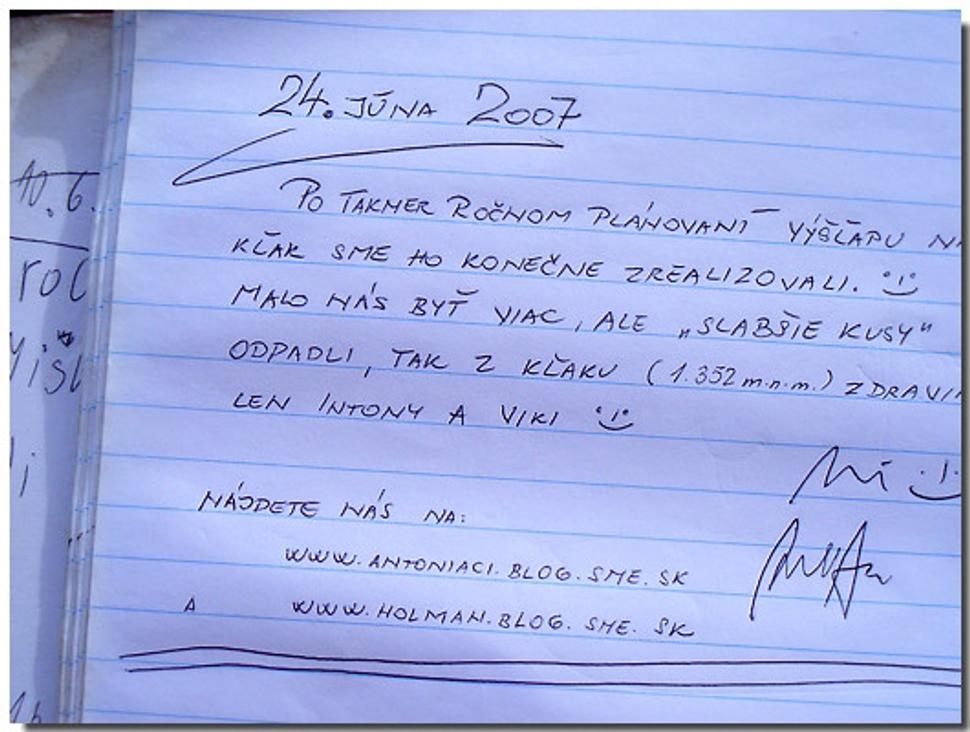 24. JÚNA 2007
PO TAKMER ROČNOM PLÁNOVANÍ VÝŠĽAPU
KĽAK SME HO KONEČNE ZREALIZOVALI.
MALO NÁS BYŤ VIAC, ALE „SLABŠIE KUSY"
ODPADLI, TAK Z KĽAKU (1.352 m.n.m.)
LEN INTONY A VIKI
NÁJDETE NÁS NA:
WWW.ANTONIACI.BLOG.SME.SK
A WWW.HOLMAN.BLOG.SME.SK
10.6.